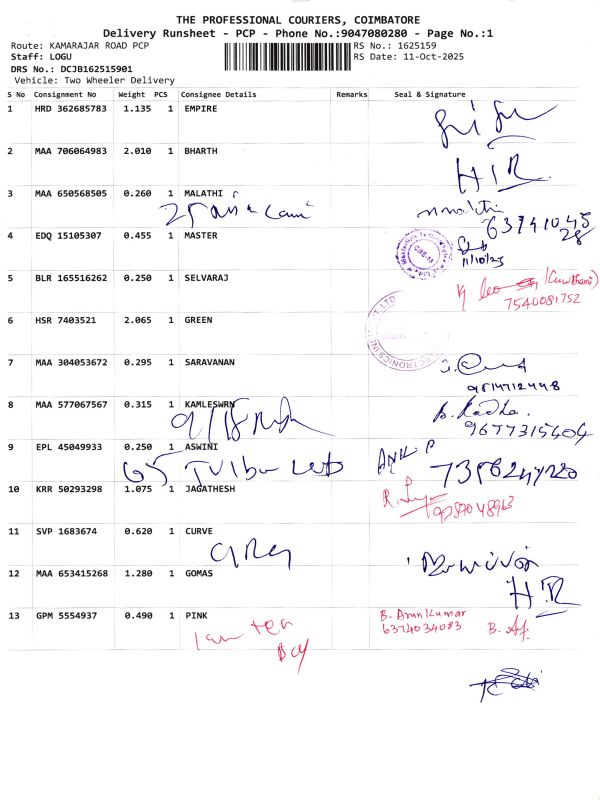 THE PROFESSIONAL COURIERS, COIMBATORE
Delivery Runsheet - PCP - Phone No.:9047080280 - Page No.:1
Route: KAMARAJAR ROAD PCP
RS No.: 1625159
Staff: LOGU
RS Date: 11-Oct-2025
DRS No.: DCJB162515901
Vehicle: Two Wheeler Delivery
S No Consignment No Weight PCS Consignee Details Remarks Seal & Signature
1 HRD 362685783 1.135 1 EMPIRE
2 MAA 706064983 2.010 1 BHARTH
H R
3 MAA 650568505 0.260 1 MALATHI
63741045
28
4 EDQ 15105307 0.455 1 MASTER
11/10/25
5 BLR 165516262 0.250 1 SELVARAJ
7540081752
6 HSR 7403521 2.065 1 GREEN
7 MAA 304053672 0.295 1 SARAVANAN
8 MAA 577067567 0.315 1 KAMLESWRN
B. Radha.
9677315404
9 EPL 45049933 0.250 1 ASWINI
10 KRR 50293298 1.075 1 JAGATHESH
11 SVP 1683674 0.620 1 CURVE
12 MAA 653415268 1.280 1 GOMAS
H.R
13 GPM 5554937 0.490 1 PINK
B. Arun Kumar
6374034083